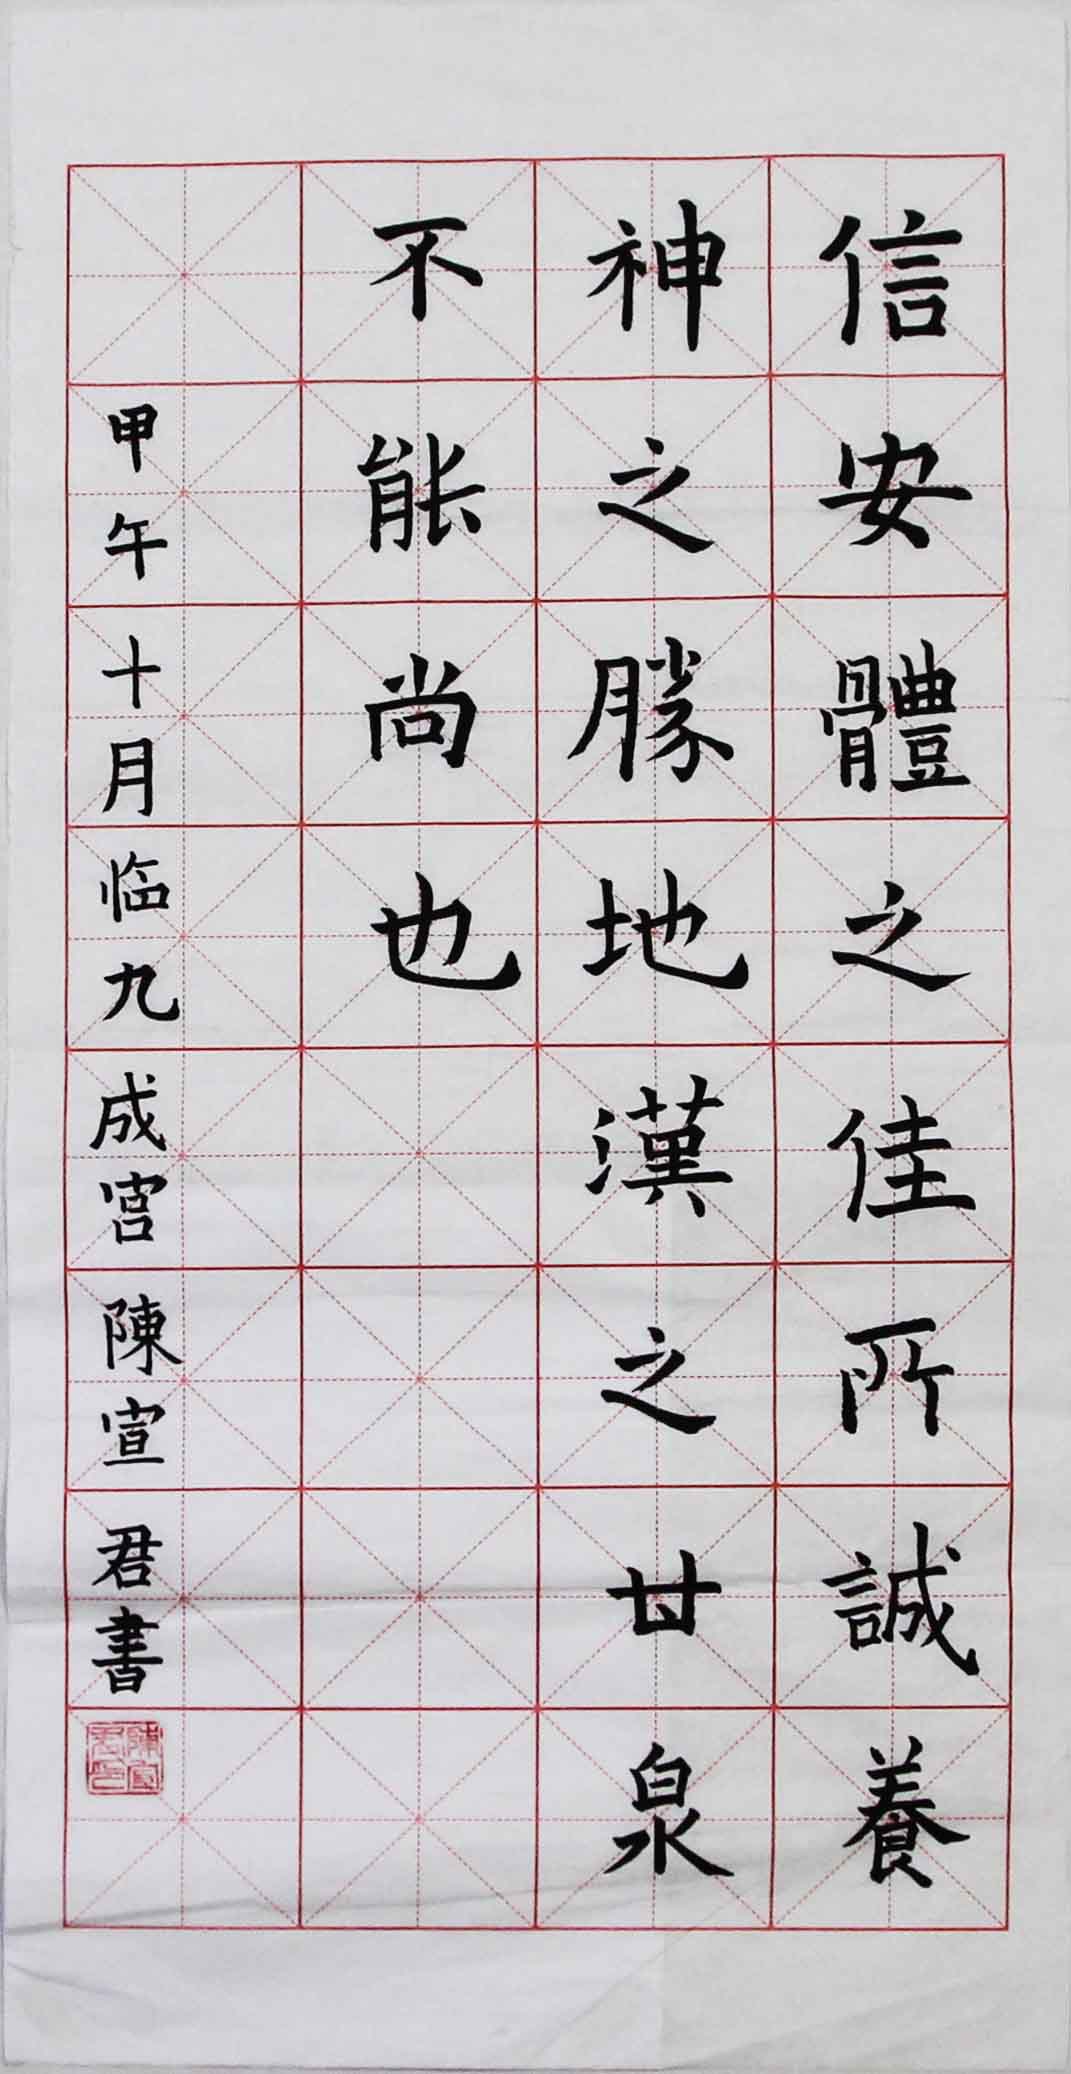 信安體之佳所誠養
神之勝地漢之甘泉
不能尚也
甲午十月临九成宫陳宣君書